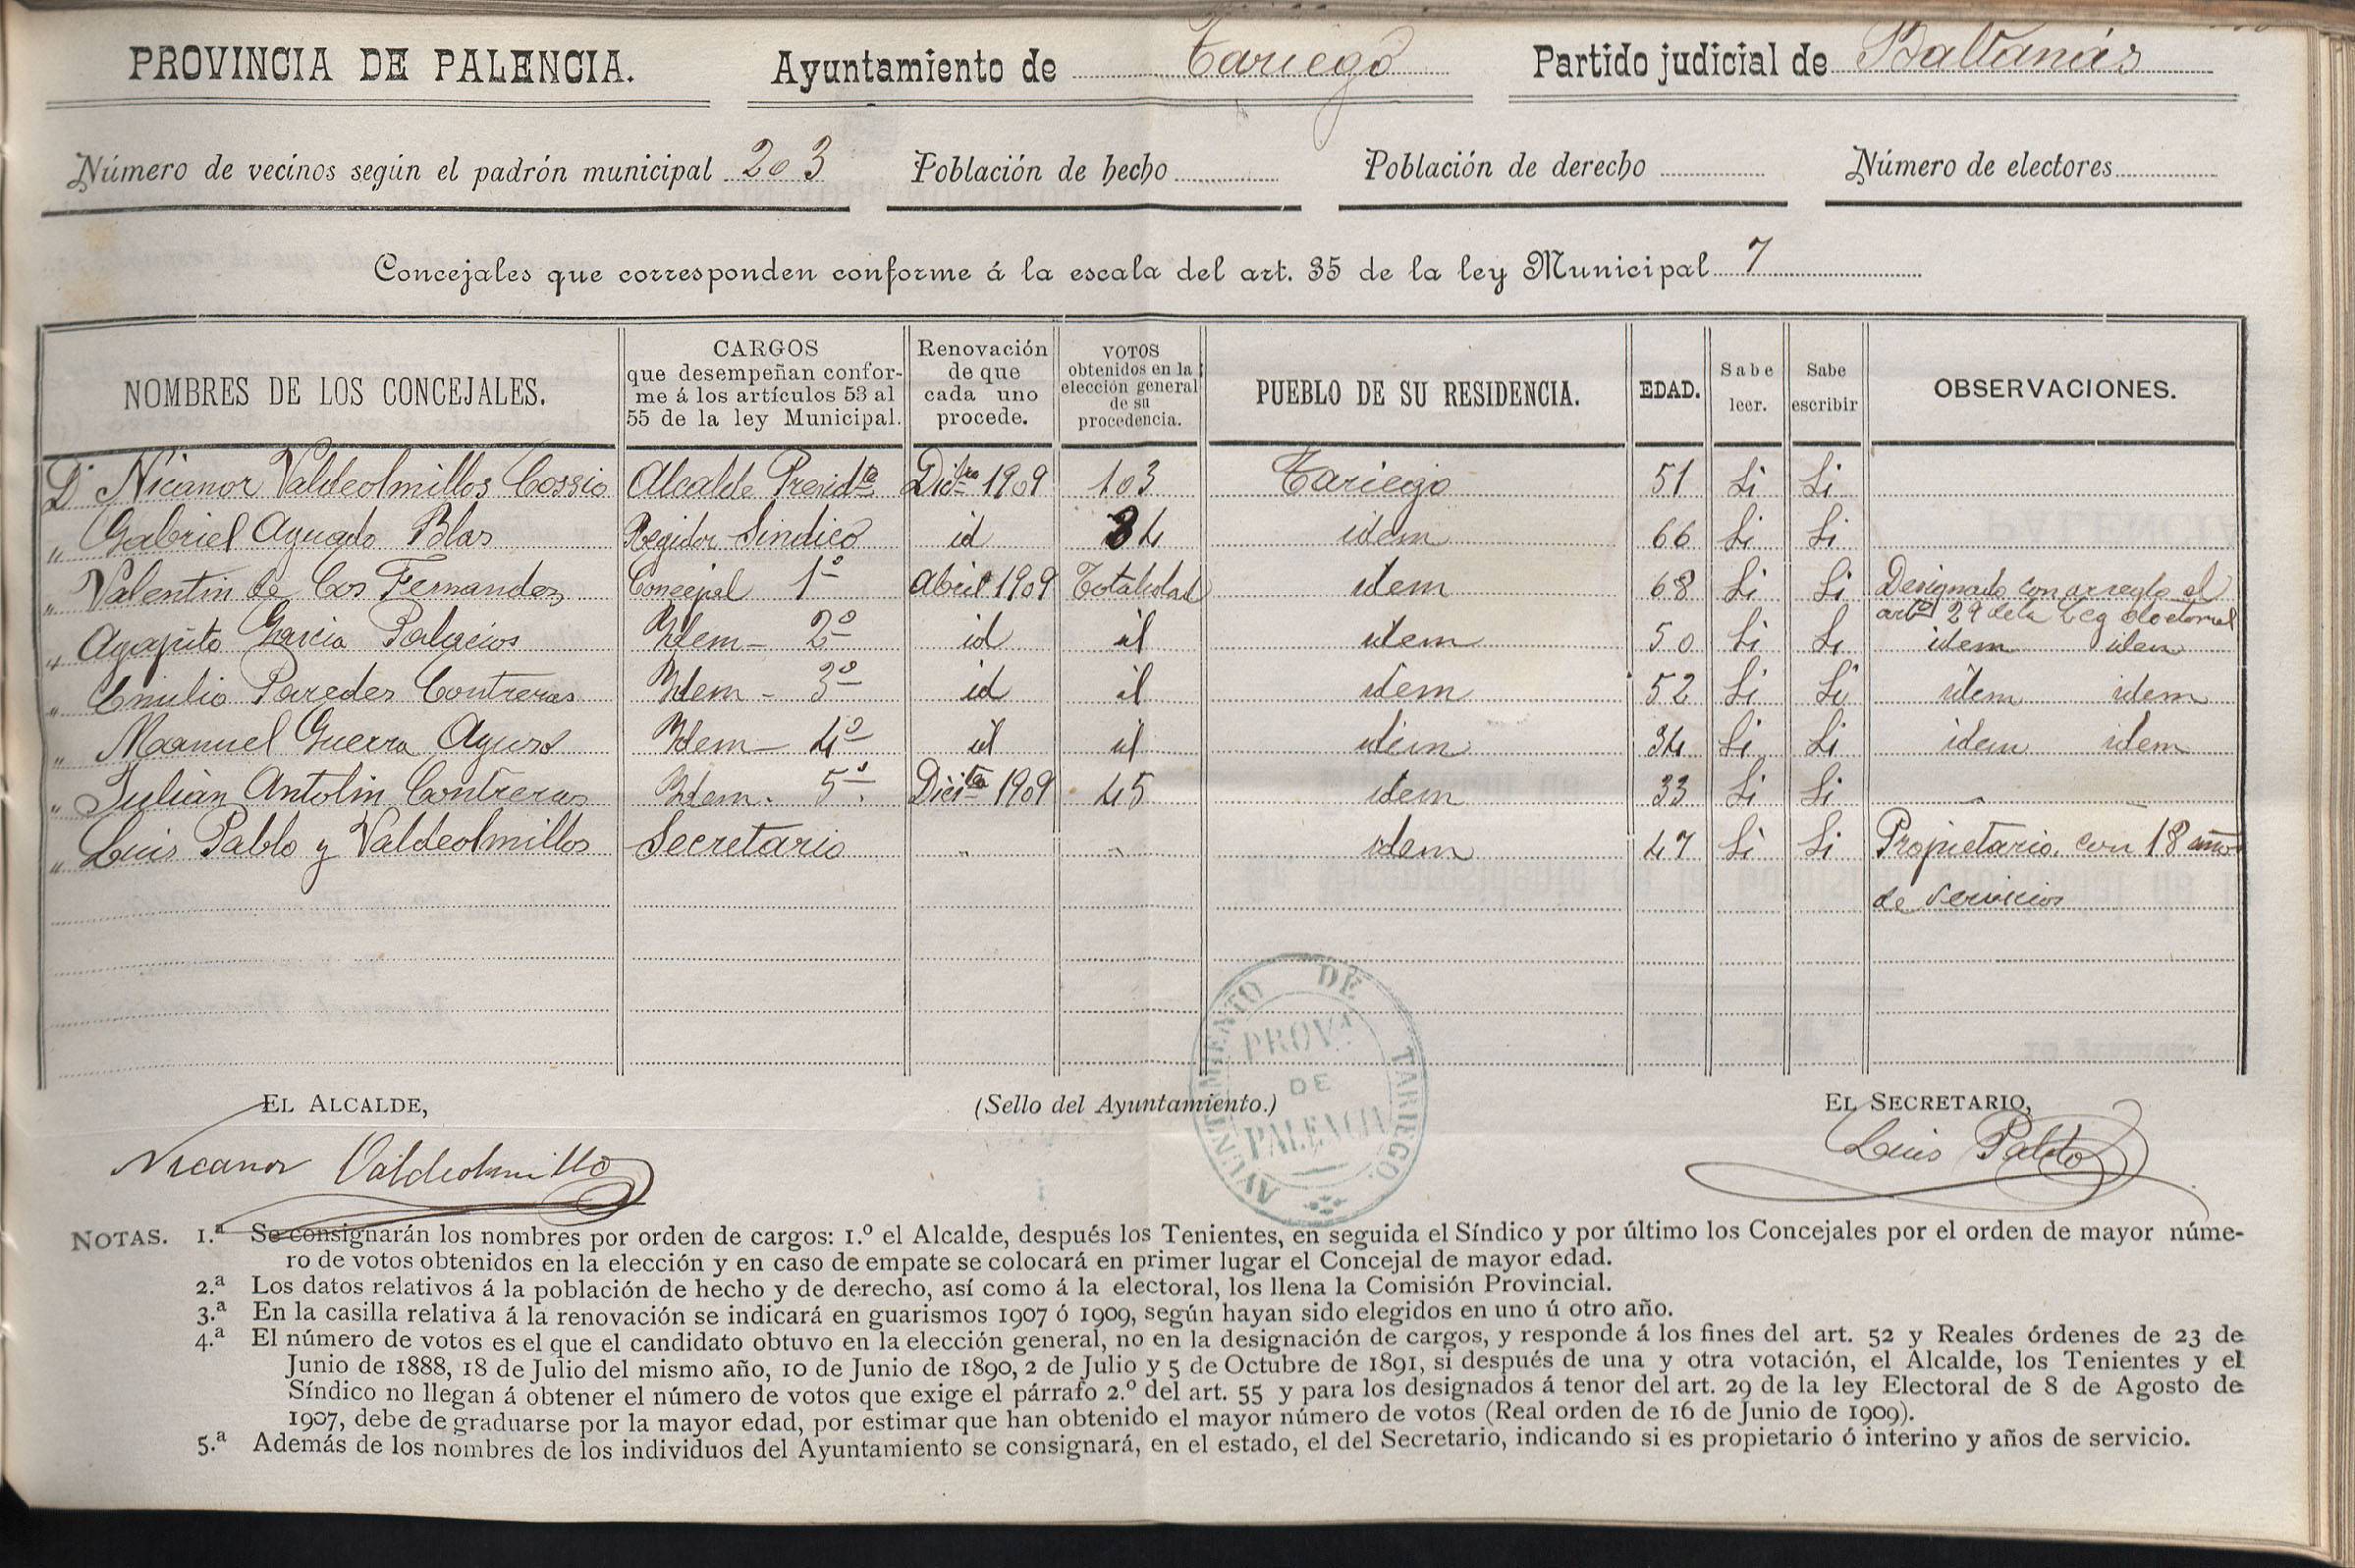 PROVINCIA DE PALENCIA. Ayuntamiento de Tariego Partido judicial de Baltanás
Número de vecinos según el padrón municipal 203 Población de hecho Población de derecho Número de electores
Concejales que corresponden conforme á la escala del art. 35 de la ley Municipal 7
NOMBRES DE LOS CONCEJALES. CARGOS que desempeñan conforme á los artículos 53 al 55 de la ley Municipal. Renovación de que cada uno procede. VOTOS obtenidos en la elección general de su procedencia. PUEBLO DE SU RESIDENCIA. EDAD. Sabe leer. Sabe escribir OBSERVACIONES.
Dn Nicanor Valdeolmillos Cossio Alcalde Presidte Dicbre 1909 103 Tariego 51 Si Si
" Gabriel Aguado Blas Regidor Sindico id 84 idem 66 Si Si
" Valentin de Cos Fernandez Concejal 1º Abril 1909 Totalidad idem 68 Si Si Designado con arreglo al artº 29 de la Ley electoral
" Agapito Garcia Palacios Idem - 2º id id idem 50 Si Si idem idem
" Emilio Paredes Contreras Idem - 3º id id idem 52 Si Si idem idem
" Manuel Guerra Aguso Idem - 4º id id idem 34 Si Si idem idem
" Julián Antolin Contreras Idem. 5º. 1909 45 idem 33 Si Si -
" Luis Pablo y Valdeolmillos Secretario " " idem 47 Si Si Propietario, con 18 años
de servicios
EL ALCALDE, (Sello del Ayuntamiento.) EL SECRETARIO,
AYUNTAMIENTO DE TARIEGO.
PROVª
DE
PALENCIA
Nicanor Valdeolmillo Luis Pablo
NOTAS. 1.ª Se consignarán los nombres por orden de cargos: 1.º el Alcalde, después los Tenientes, en seguida el Síndico y por último los Concejales por el orden de mayor núme-
ro de votos obtenidos en la elección y en caso de empate se colocará en primer lugar el Concejal de mayor edad.
2.ª Los datos relativos á la población de hecho y de derecho, así como á la electoral, los llena la Comisión Provincial.
3.ª En la casilla relativa á la renovación se indicará en guarismos 1907 ó 1909, según hayan sido elegidos en uno ú otro año.
4.ª El número de votos es el que el candidato obtuvo en la elección general, no en la designación de cargos, y responde á los fines del art. 52 y Reales órdenes de 23 de
Junio de 1888, 18 de Julio del mismo año, 10 de Junio de 1890, 2 de Julio y 5 de Octubre de 1891, si después de una y otra votación, el Alcalde, los Tenientes y el
Síndico no llegan á obtener el número de votos que exige el párrafo 2.º del art. 55 y para los designados á tenor del art. 29 de la ley Electoral de 8 de Agosto de
1907, debe de graduarse por la mayor edad, por estimar que han obtenido el mayor número de votos (Real orden de 16 de Junio de 1909).
5.ª Además de los nombres de los individuos del Ayuntamiento se consignará, en el estado, el del Secretario, indicando si es propietario ó interino y años de servicio.